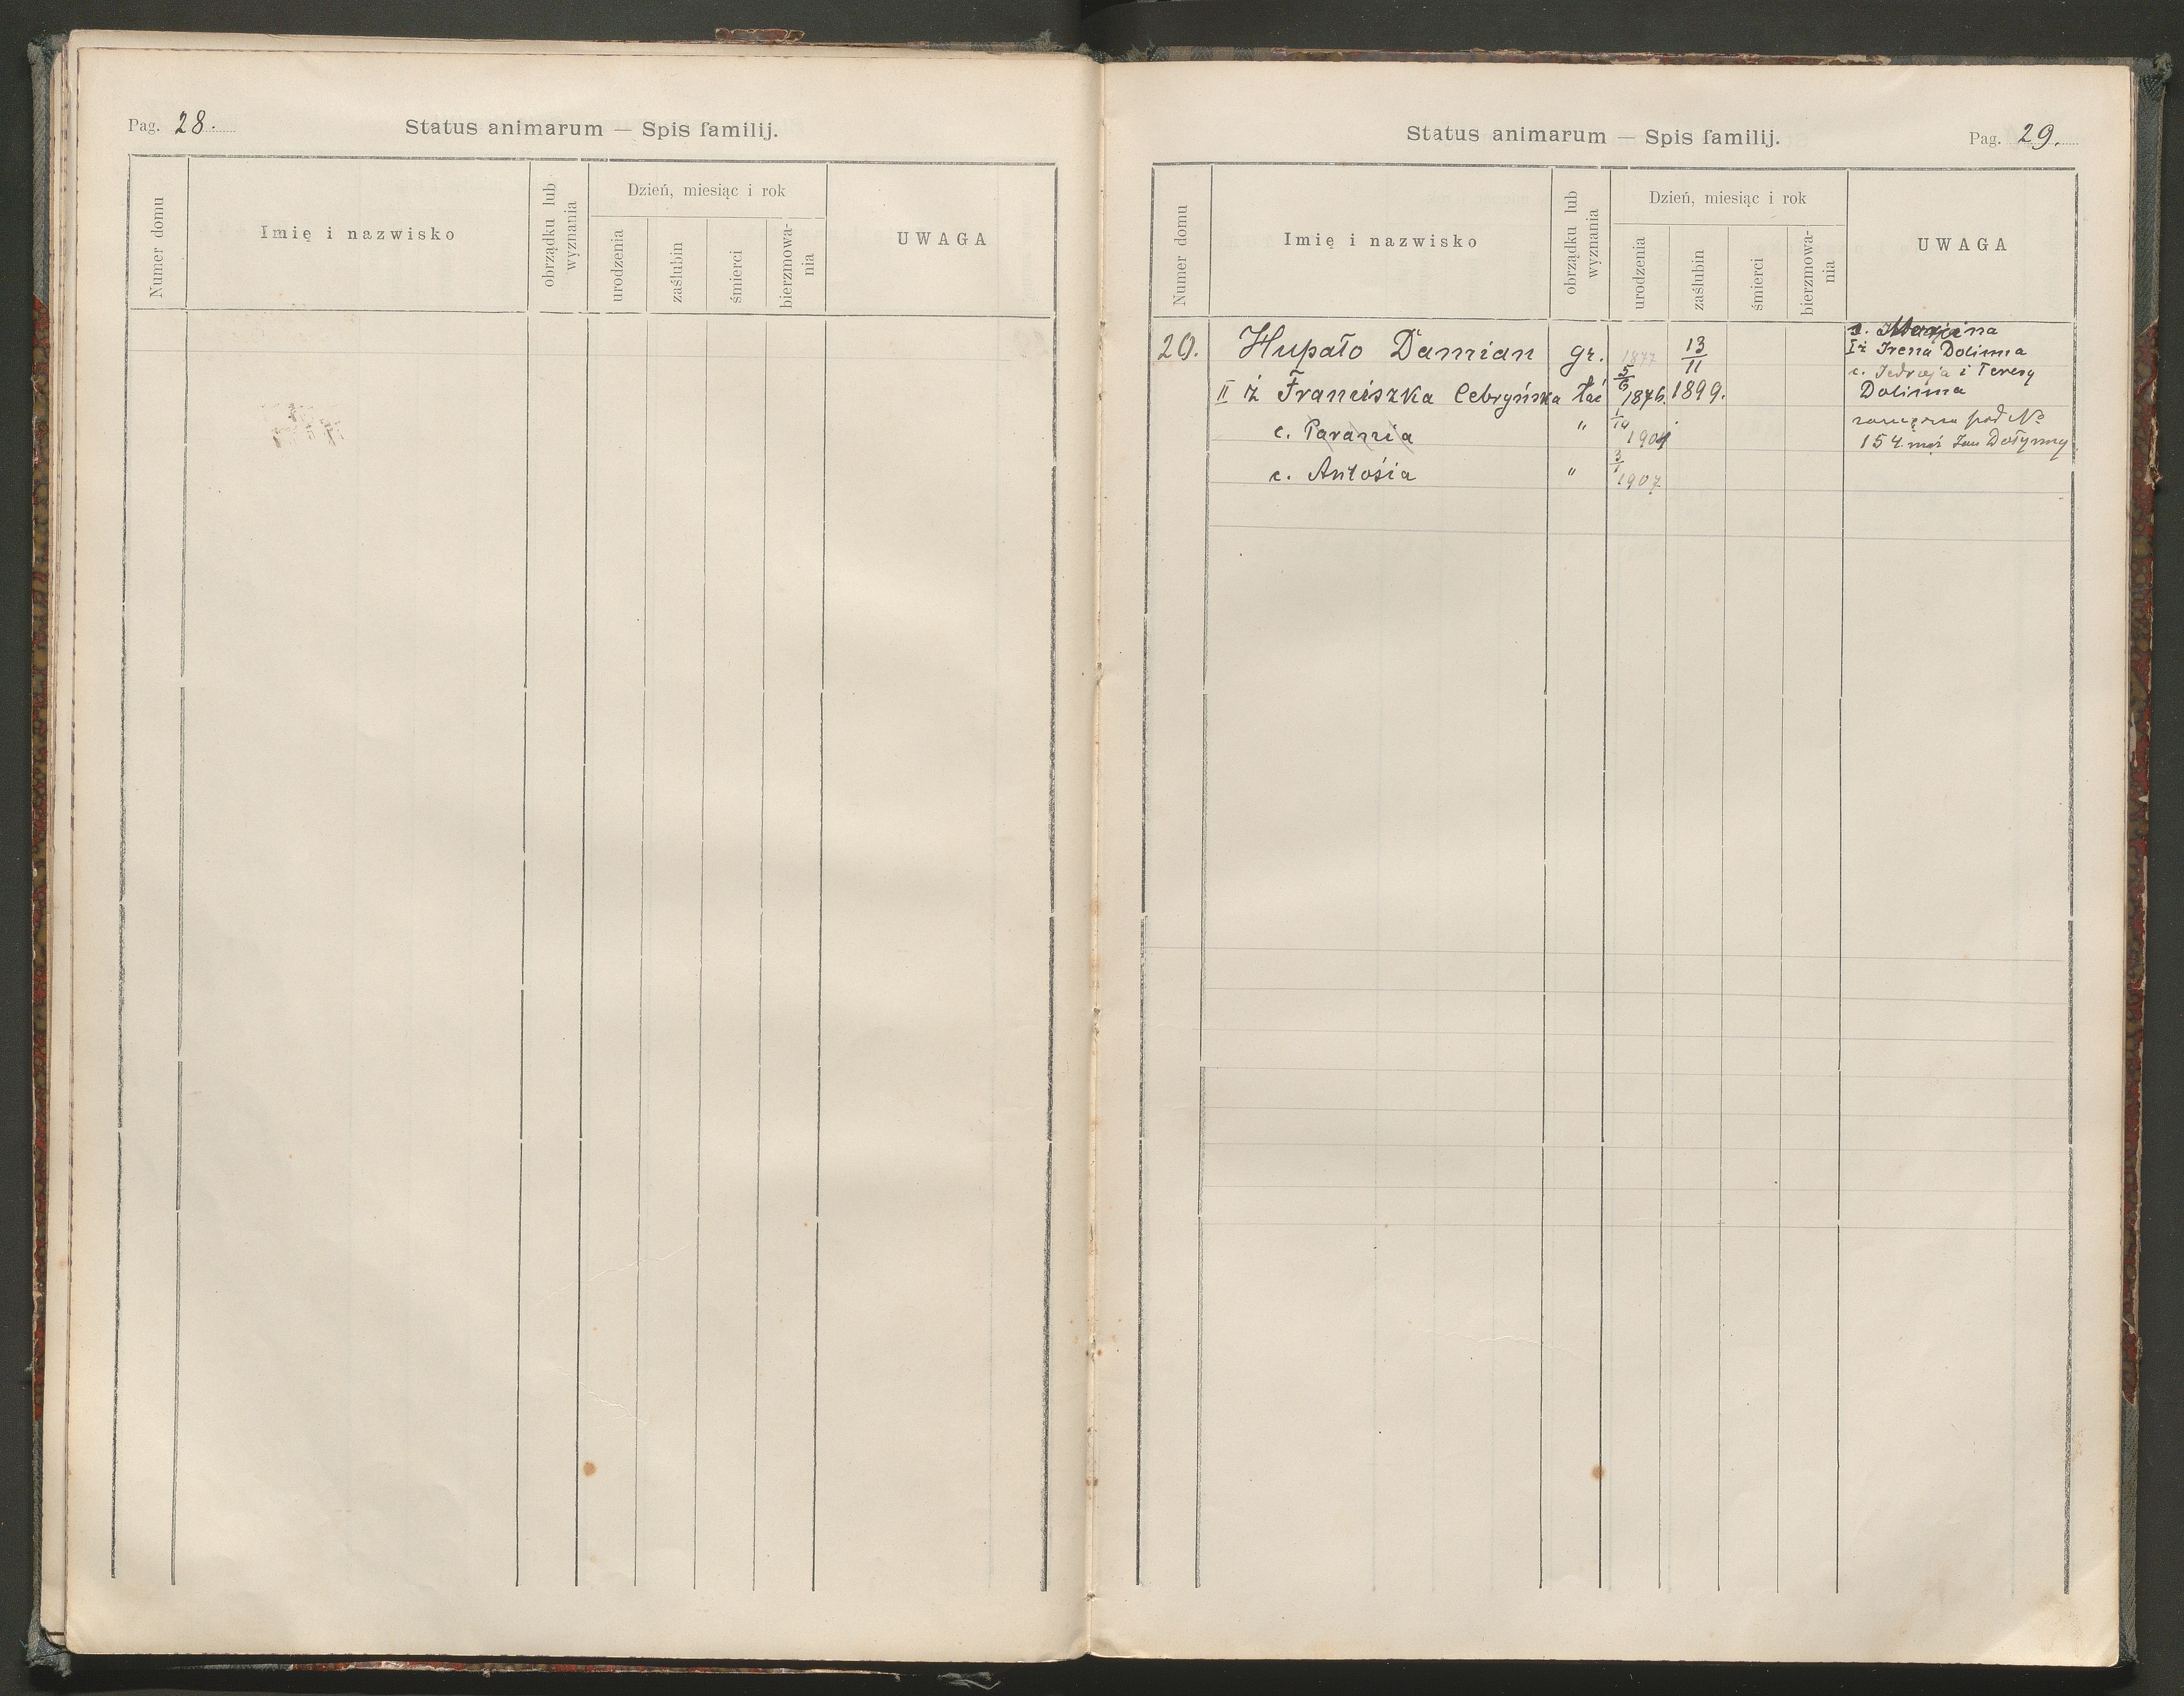 Pag. 28.
Status animarum — Spis familij.
Numer domu
Imię i nazwisko
obrządku lub
wyznania
Dzień, miesiąc i rok
urodzenia
zaślubin
śmierci
bierzmowa-
nia
UWAGA
Status animarum — Spis familij.
Pag. 29.
Numer domu
Imię i nazwisko
obrządku lub
wyznania
Dzień, miesiąc i rok
urodzenia
zaślubin
śmierci
bierzmowa-
nia
UWAGA
20. Hupało Damian gr. 1877 13/11
II ż Franciszka Cebryńska łać 5/6 1876. 1899.
c. Parania " 1/10 1904
c. Antosia " 3/1 1907
I ż Irena Dolinna
c. Jędrzeja i Teresy
Dolinna
zamężna pod No
154. mąż Jan Dołynny